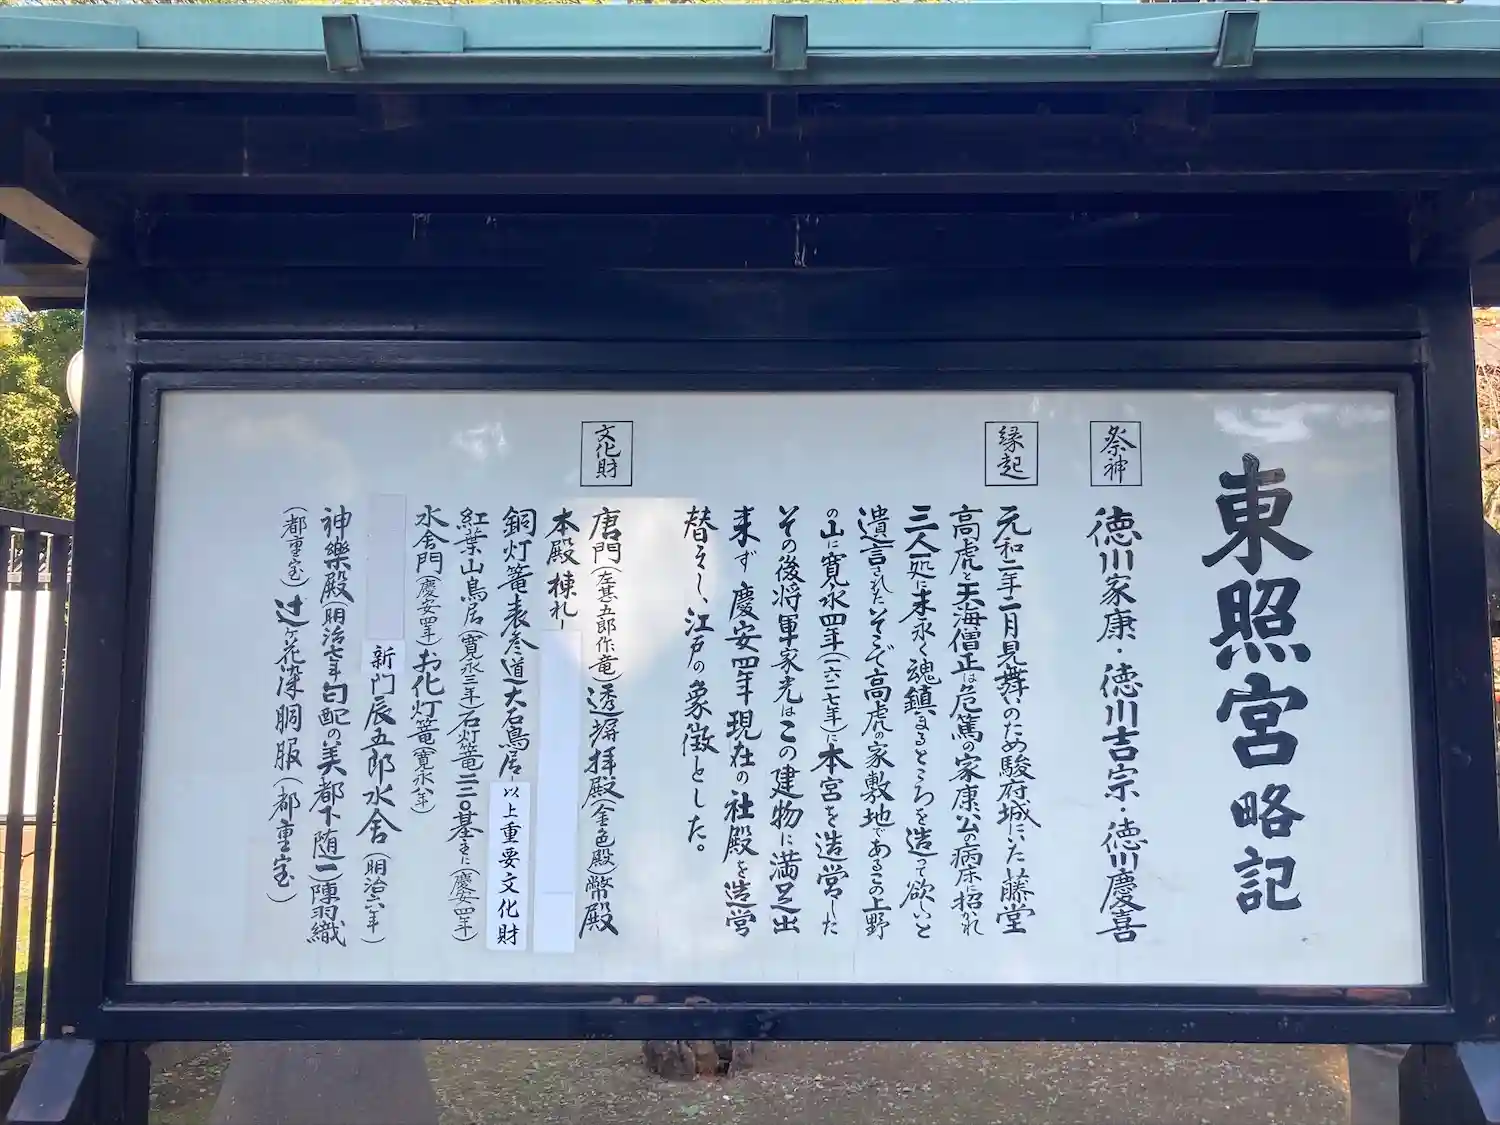 東照宮略記
祭神
徳川家康・徳川吉宗・徳川慶喜
縁起
元和二年二月見舞いのため駿府城にいた藤堂
高虎と天海僧正は危篤の家康公の病床に招かれ
三人一処に末永く魂鎮まるところを造って欲しいと
遺言されたそこで高虎の家敷地であるこの上野
の山に寛永四年(一六二七年)に本宮を造営した
その後将軍家光はこの建物に満足出
来ず慶安四年現在の社殿を造営
替えし、江戸の象徴とした。
文化財
唐門(左甚五郎作竜)透塀拝殿(金色殿)幣殿
本殿棟札
銅灯篭表参道大石鳥居 以上重要文化財
紅葉山鳥居(寛永三年)石灯篭二二〇基主に(慶安四年)
水舎門(慶安四年)お化灯篭(寛永八年)
新門辰五郎水舎(明治六年)
神樂殿(明治七年)匂配の美都下随一)陣羽織
(都重宝)辻ヶ花染胴服(都重宝)